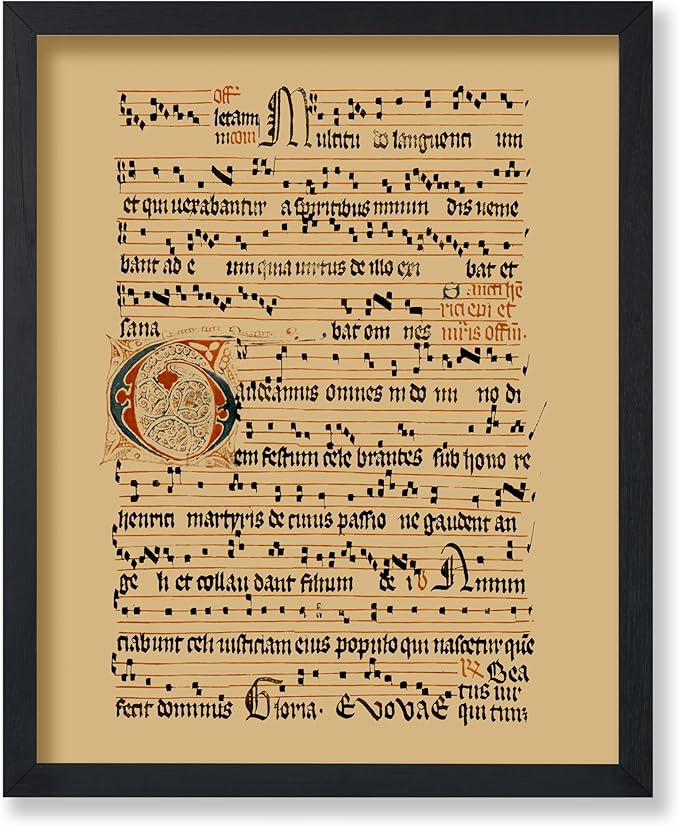 off̄
letamī Multitu do languenti um
m com
et qui uexabantur a spiritibus inmun dis uenie
bant ad e um quia uirtus de illo exi bat et
Sancti hē
rici ep̄i et
sana bat om nes mr̄is offm̄.
Gaudeamus omnes in do mi no di
em festum cele brantes sub hono re
henrici martyris de cuius passio ne gaudent an
ge li et collau dant filium de i V Annun
ciabunt celi iusticiam eius populo qui nascetur quē
R Bea
tus uir
fecit dominus Gloria. EVOVAE qui tim